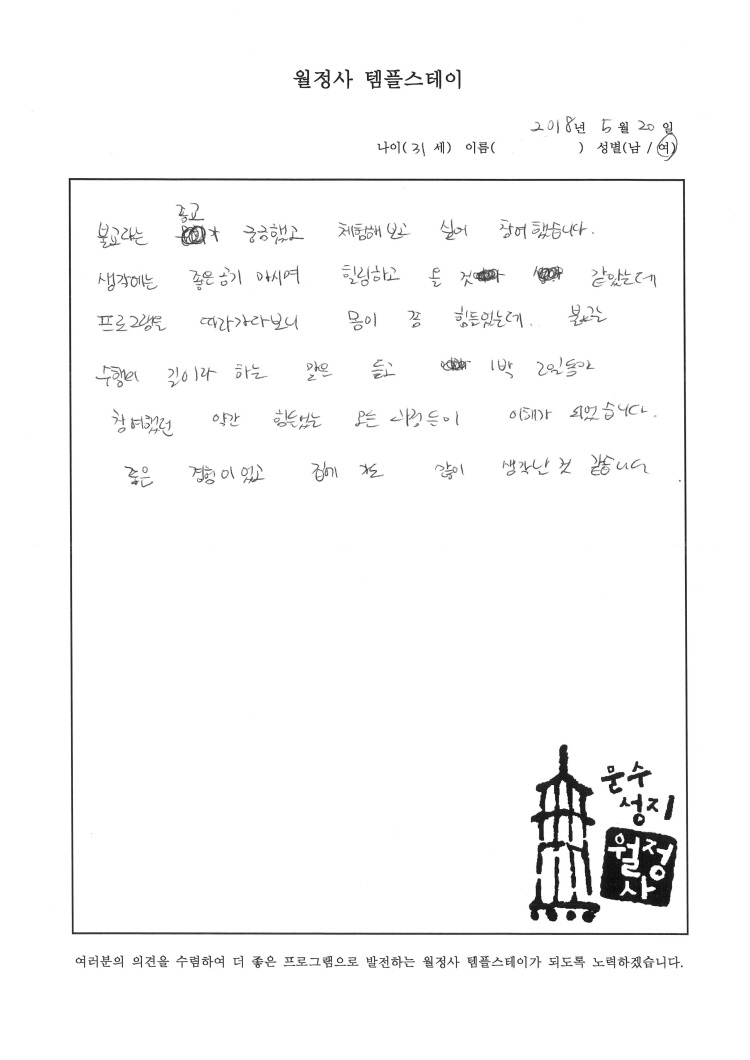 월정사 템플스테이
2018년 5월 20일
나이(31 세) 이름( ) 성별(남 / 여)
종교
불교라는 가 궁금했고 체험해 보고 싶어 참여했습니다.
생각에는 좋은 공기 마시며 힐링하고 올 것 같았는데
프로그램을 따라가다보니 몸이 좀 힘들었는데. 불교는
수행의 길이라 하는 말을 듣고 1박 2일동안
참여했던 약간 힘들었는 모든 이해가 되었습니다.
좋은 경험이었고 집에 가도 많이 생각난 것 같습니다
문수
성지
월정
사
여러분의 의견을 수렴하여 더 좋은 프로그램으로 발전하는 월정사 템플스테이가 되도록 노력하겠습니다.